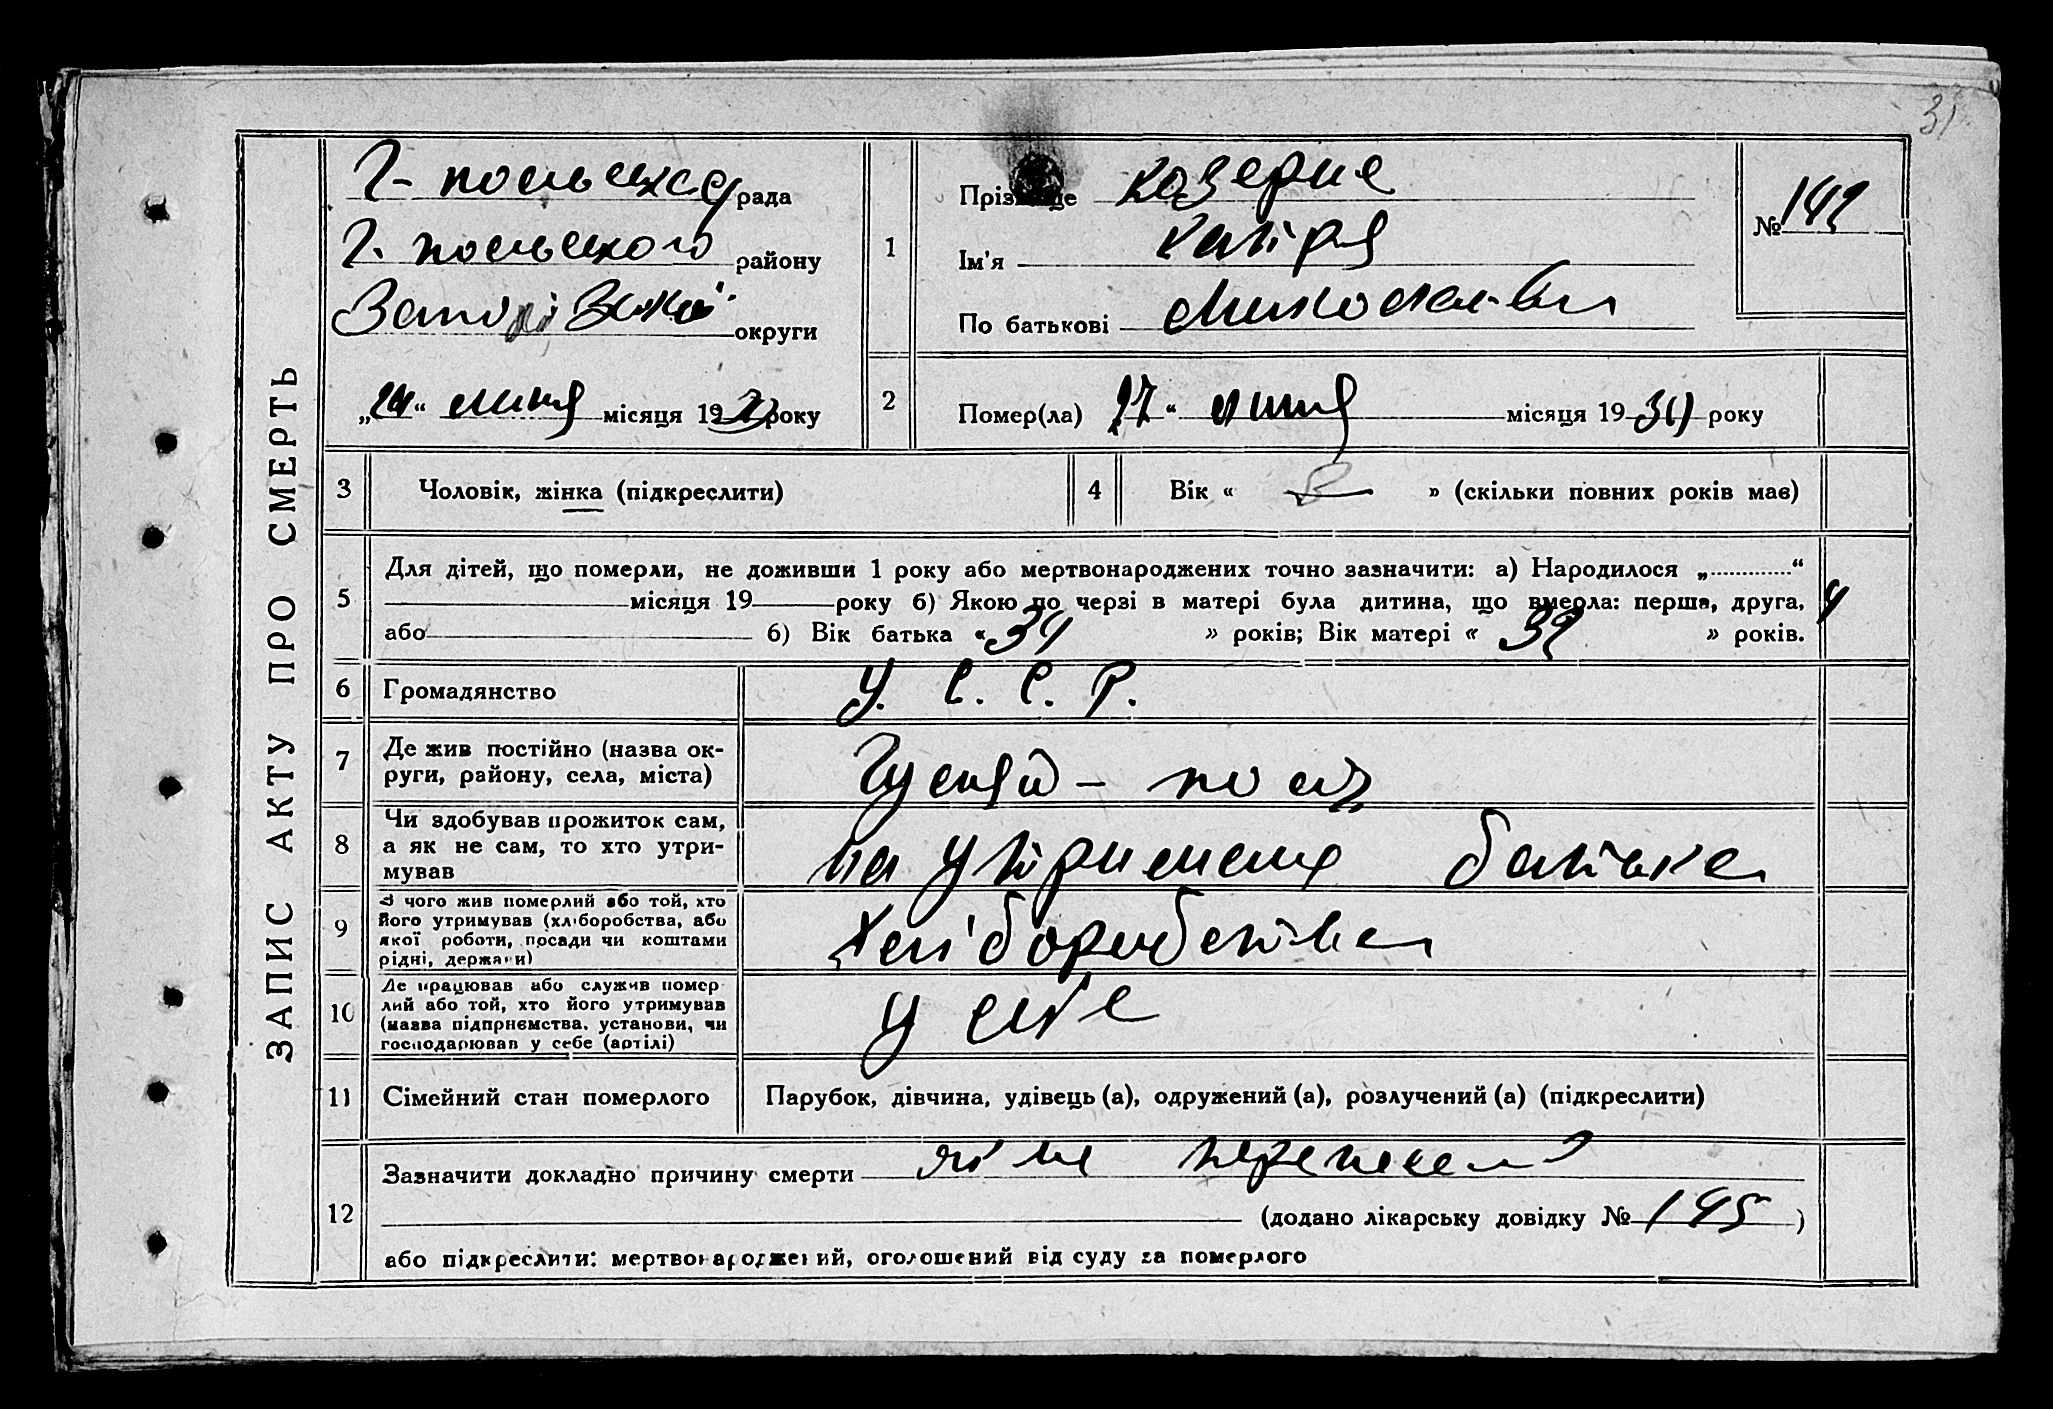 31
ЗАПИС АКТУ ПРО СМЕРТЬ
Г-польська рада
Г. польського району
Запорізької округи
„24“ липня місяця 19 року
1
Прізвище Козерие
Ім'я Катря
По батькові Миколаївн
№ 142
2
Помер(ла) 27 “ липня місяця 1930 року
3
Чоловік, жінка (підкреслити)
4
Вік « » (скільки повних років має)
5
Для дітей, що померли, не доживши 1 року або мертвонароджених точно зазначити: а) Народилося „ “
місяця 19 року б) Якою по черзі в матері була дитина, що вмерла: перша, друга,
або б) Вік батька « 34 » років; Вік матері « 32 » років.
6
Громадянство
У. С. С. Р.
7
Де жив постійно (назва ок-
руги, району, села, міста)
Гуляй-поле
8
Чи здобував прожиток сам,
а як не сам, то хто утри-
мував
на утриманя батька
9
З чого жив померлий або той, хто
його утримував (хліборобства, або
якої роботи, посади чи коштами
рідні, держави)
Хліборобства
10
Де працював або служив помер
лий або той, хто його утримував
(назва підприємства, установи, чи
господарював у себе (артілі)
у себе
11
Сімейний стан померлого
Парубок, дівчина, удівець (а), одружений (а), розлучений (а) (підкреслити)
12
Зазначити докладно причину смерти
(додано лікарську довідку № 145 )
або підкреслити: мертвонароджений, оголошений від суду за померлого